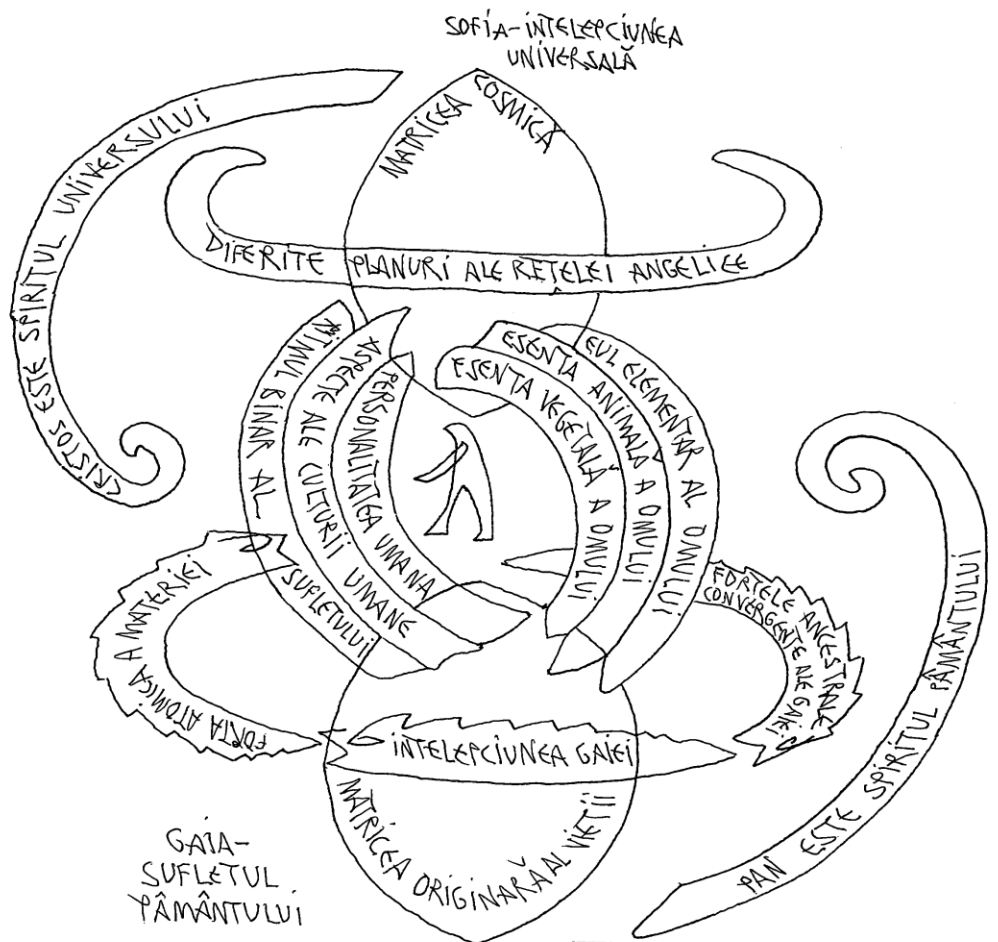 SOFÍA-INTELEPCIUNEA
UNIVERSALĂ
MATRICEA COSMICĂ
CRISTOS ESTE SPIRITUL UNIVERSULUI
DIFERITE PLANURI ALE REȚELEI ANGELICE
RITMUL BINAR AL SUFLETULUI
ASPECTE ALE CULTURII UMANE
PERSONALITATEA UMANA
ESENTA VEGETALĂ A OMULUI
ESENTA ANIMALĂ A OMULUI
EUL ELEMENTAR AL OMULUI
FORTA ATOMICA A MATERIEI
FORTELE ANCESTRALE
CONVERGENTE ALE GAIEI
INTELEPCIUNEA GAIEI
MATRICEA ORIGINARĂ AL VIETII
PAN ESTE SPIRITUL PÂMÂNTULUI
GAIA-
SUFLETUL
PÂMÂNTULUI